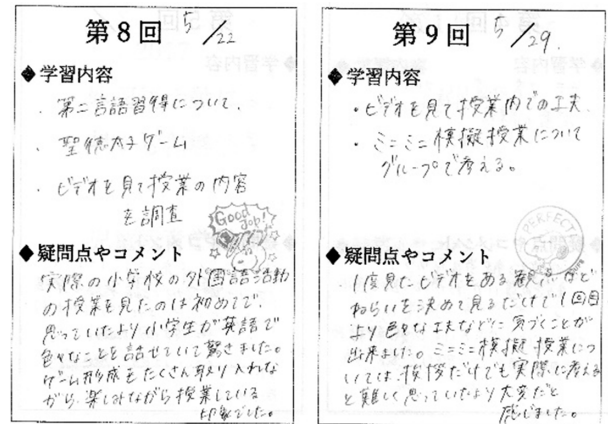 第8回 5/22
◆学習内容
・第二言語習得について.
・聖徳太子ゲーム
・ビデオを見て授業の内容
を調査
Good job!
◆疑問点やコメント
実際の小学校の外国語活動
の授業を見たのは初めてで、
思っていたより小学生が英語で
色々なことを話せていて驚きました。
ゲーム形式をたくさん取り入れな
がら、楽しみながら授業している
印象でした。
第9回 5/29.
◆学習内容
・ビデオを見て授業内での工夫.
・ミニミニ模擬授業について
グループで考える。
PERFECT
◆疑問点やコメント
・1度見たビデオをある観点など
ねらいを決めて見るだけで1回目
より色々な工夫などに気づくことが
出来ました。ミニミニ模擬授業につ
いては、挨拶だけでも実際に考える
と難しく思っていたより大変だと
感じました。